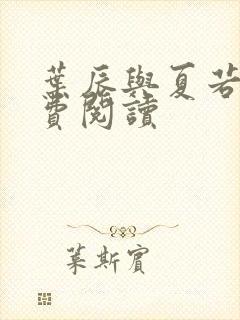 葉辰與夏若
費閱讀
葉斯賓